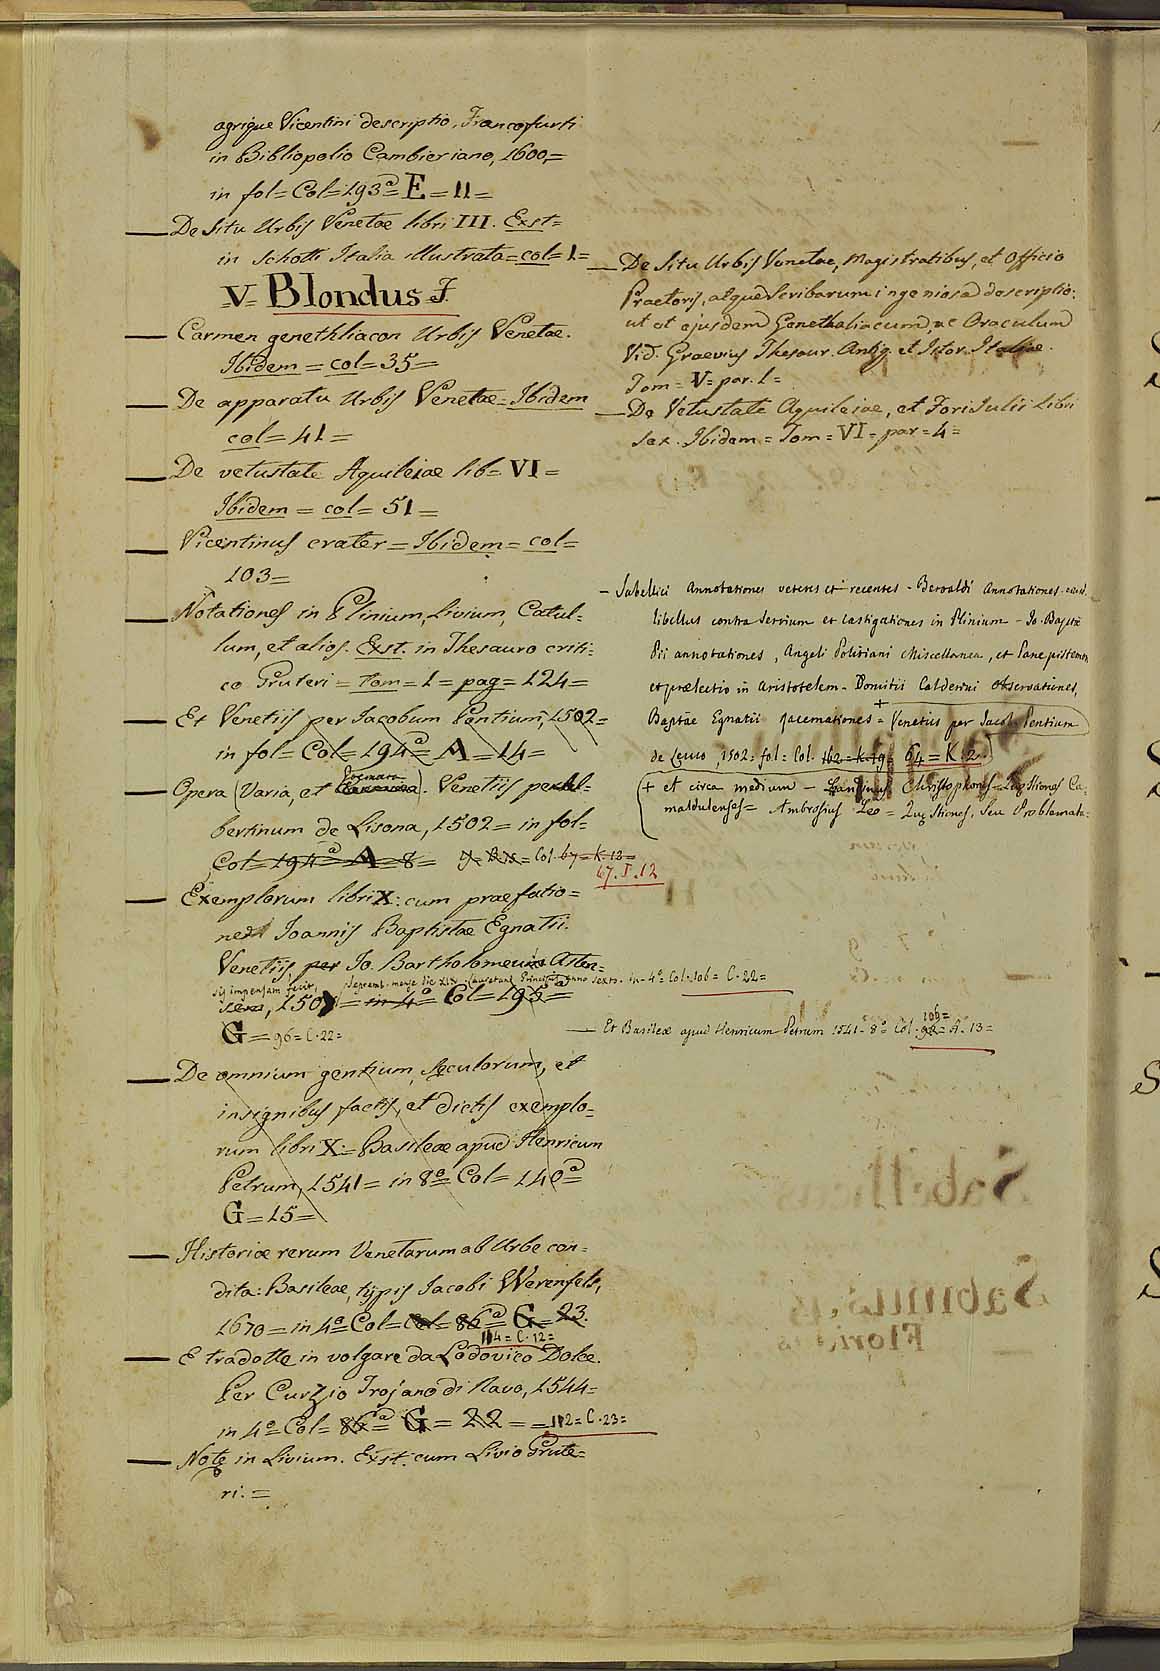 agrique Vicentini descriptio. Francofurti
in Bibliopolio Cambieriano, 1600,=
in fol= Col= 193ª= E = 11=
De Situ Urbis Venetae libri III. Exst=
in Schotti Italia illustrata= col= 1=
V= Blondus F.
Carmen genethliacon Urbis Venetae.
Ibidem = col= 35=
De apparatu Urbis Venetae= Ibidem
col= 41=
De vetustate Aquileiae lib= VI=
Ibidem = col= 51=
Vicentinus crater = Ibidem = col=
103=
Notationes in Plinium, Livium, Catul=
lum, et alios. Exst. in Thesauro criti=
co Gruteri = Tom= 1= pag= 124=
Et Venetiis per Jacobum Pentium, 1502=
in fol= Col= 194ª= A = 14=
Opera (Varia, et). Venetiis per Al=
bertinum de Lisona, 1502= in fol=
Col= 194ª A = 8= = Col. 67= K. 13=
67. I. 12
Exemplorum libri X: cum praefatio=
ne Joannis Baptistae Egnatii.
Venetiis, per Jo. Bartholomeus Asten=
sis impensam fecit, Septemb. mense die XIX. Lauretani Principis anno sexto. in 4º Col. 106= C. 22=
sem, 1507= in 4º= Col= 195ª=
G = 96= C. 22=
De omnium gentium, Saeculorum, et
insignibus factis, et dictis exemplo=
rum libri X= Basileae apud Henricum
Petrum, 1541= in 8º= Col= 140ª=
G= 15=
Historiae rerum Venetarum ab Urbe con=
dita: Basileae, typis Jacobi Werenfels,
1670= in 4º= Col= Col= 86ª= G= 23.
114= C. 12=
E tradotte in volgare da Lodovico Dolce.
Per Curzio Trojano di Navo, 1544=
in 4º= Col= 86ª= G = 22= =112= C. 23=
Note in Livium. Exst. cum Livio Grute=
ri. =
De Situ Urbis Venetae, Magistratibus, et Officio
Praetoris, atque Scribarum ingeniosa descriptio:
ut et ejusdem Genethaliacum, ac Oraculum
Vid. Graevius Thesaur. Antiq. et Istor. Italiae.
Tom= V= par. 1=
De Vetustate Aquileiae, et Fori Julii Libri
sex. Ibidem= Tom= VI= par= 4=
- Sabellici Annotationes veteres et recentes - Beroaldi Annotationes
libellus contra Servium et castigationes in Plinium - Jo. Baptae
Pii annotationes, Angeli Politiani Miscellanea, et Panepistemon
et praelectio in Aristotelem - Domitii Calderini observationes,
Baptae Egnatii racemationes + = Venetiis per Jacob. Pentium
de Leuco, 1502= fol= Col. 162= K. 19= 64= K. 2.
(+ et circa medium - Landinus Christophorus= Quaestiones Ca=
maldulenses= Ambrosius Leo = Quaestiones, seu Problemata=
Et Basileae apud Henricum Petrum 1541= 8º= Col. 92= A. 13=
106=